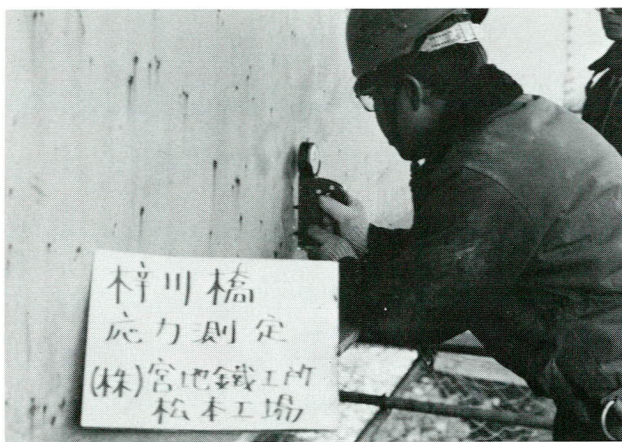 梓川橋
応力測定
(株)宮地鐵工所
松本工場